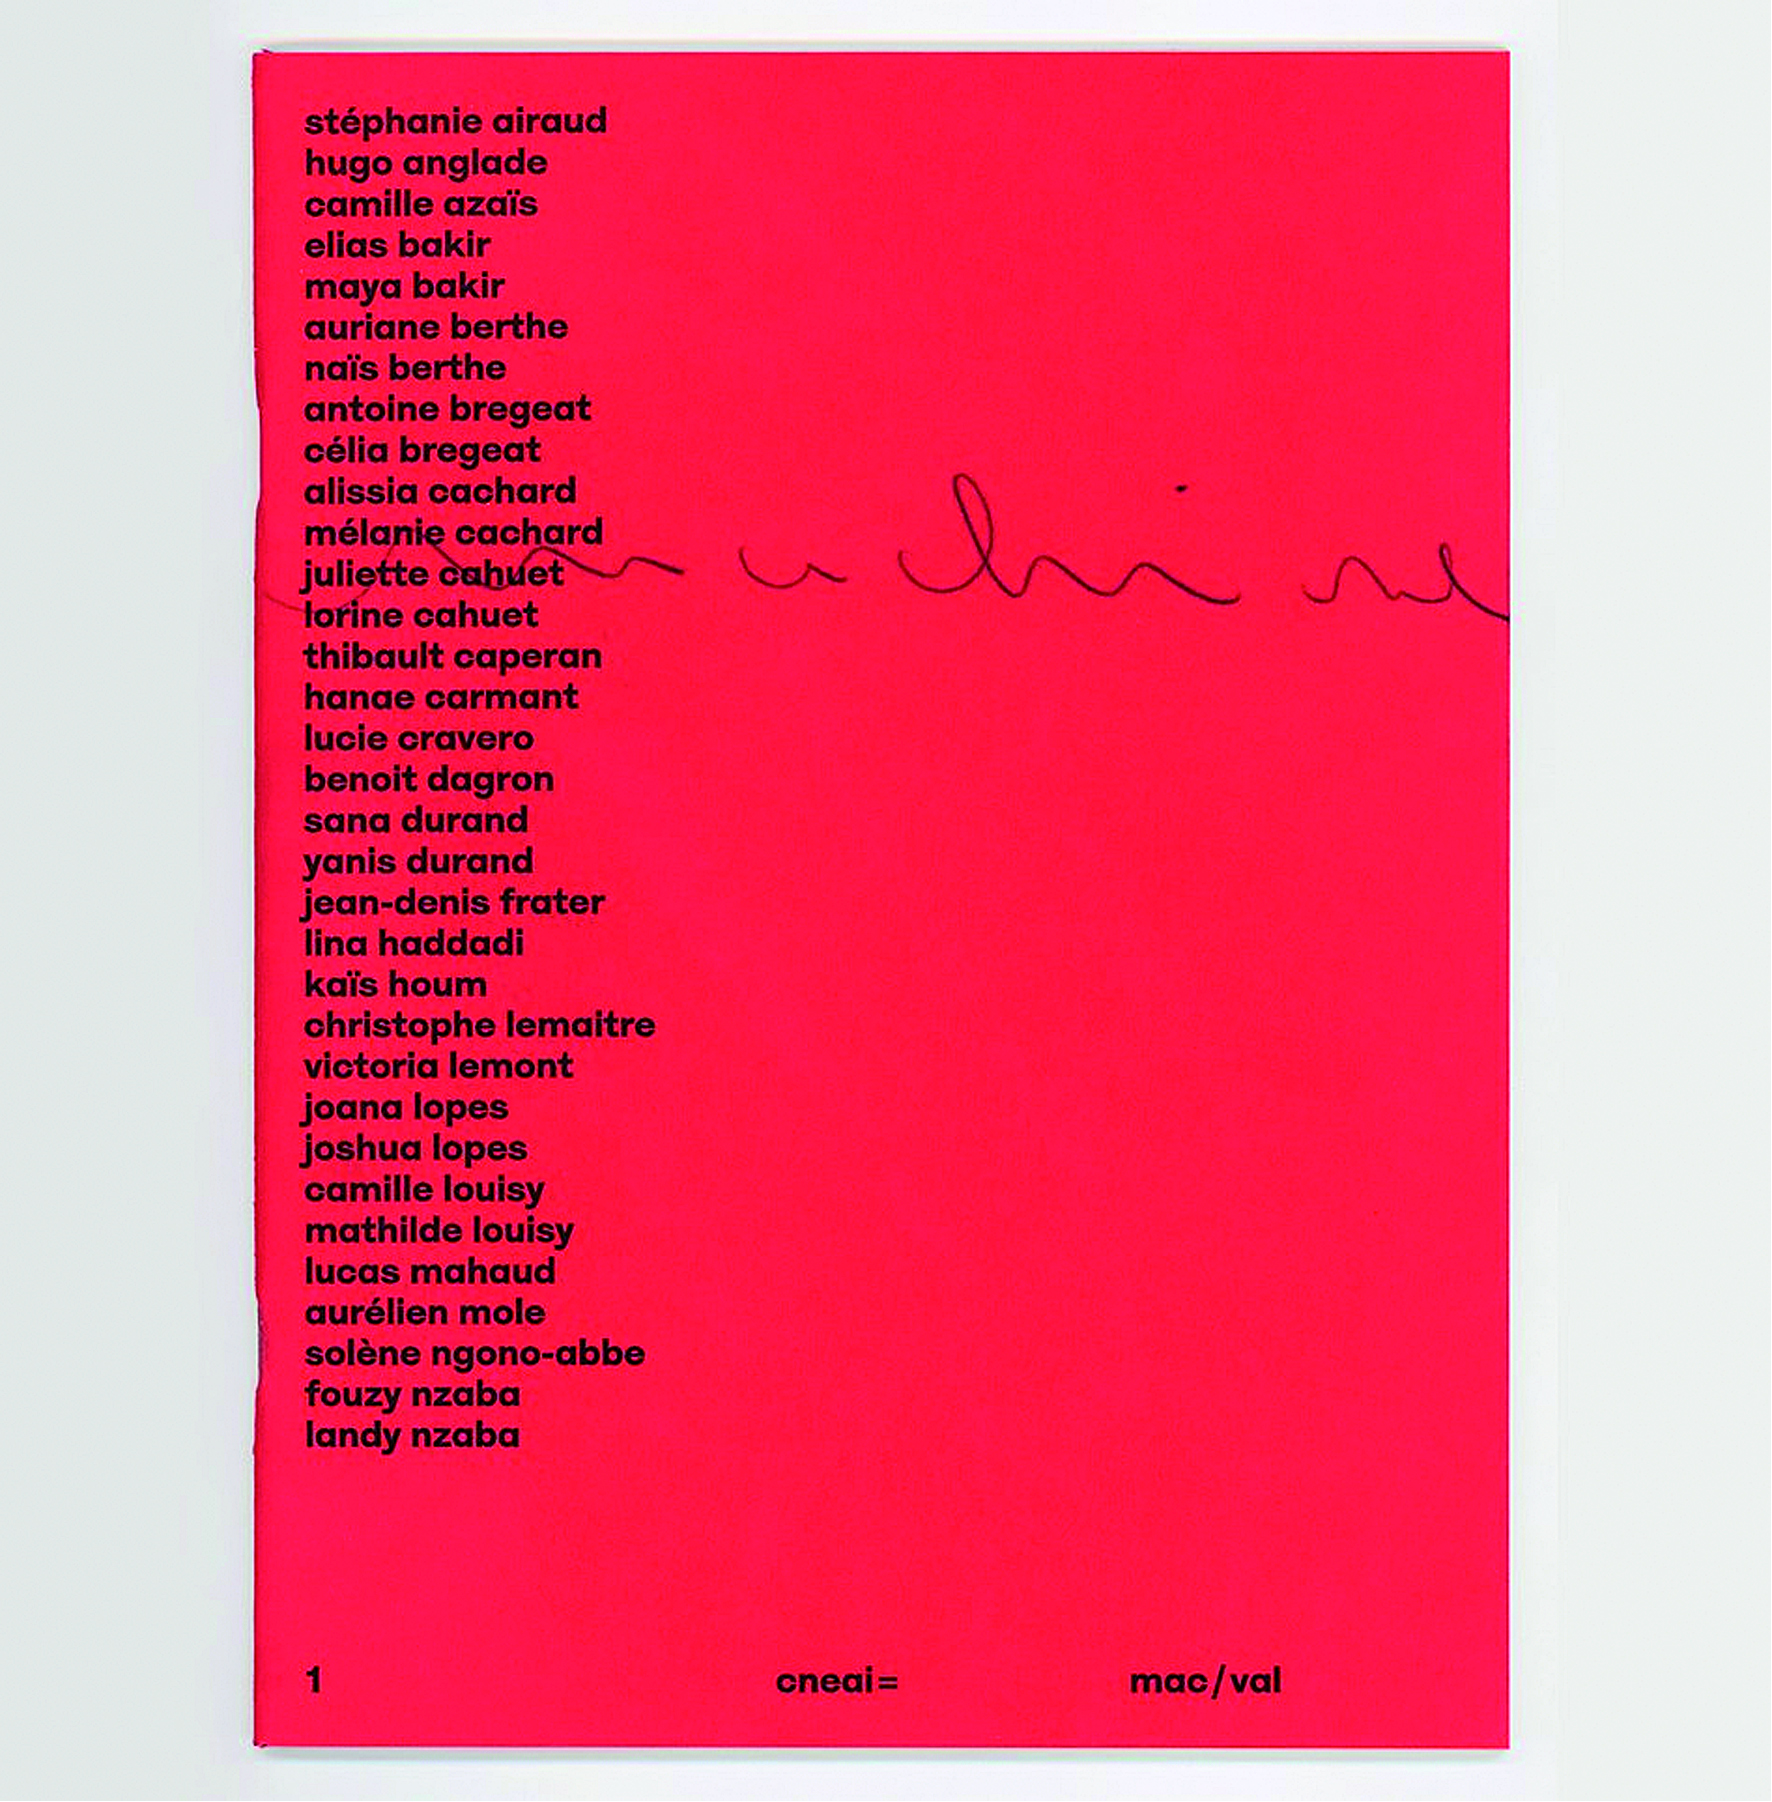 stéphanie airaud
hugo anglade
camille azaïs
elias bakir
maya bakir
auriane berthe
naïs berthe
antoine bregeat
célia bregeat
alissia cachard
mélanie cachard
juliette cahuet
lorine cahuet
thibault caperan
hanae carmant
lucie cravero
benoit dagron
sana durand
yanis durand
jean-denis frater
lina haddadi
kaïs houm
christophe lemaitre
victoria lemont
joana lopes
joshua lopes
camille louisy
mathilde louisy
lucas mahaud
aurélien mole
solène ngono-abbe
fouzy nzaba
landy nzaba
1 cneai= mac/val